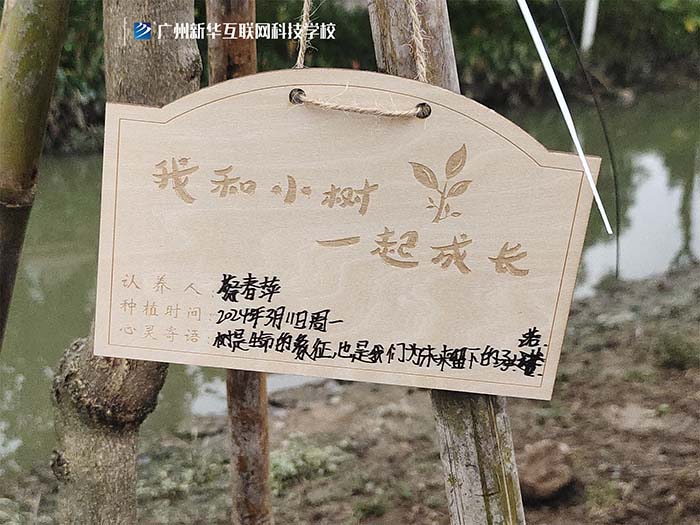 广州新华互联网科技学校
我和小树
一起成长
认养人: 蔡春萍
种植时间: 2024年3月11日周一
心灵寄语: 树是生命的象征,也是我们为未来留下的承诺